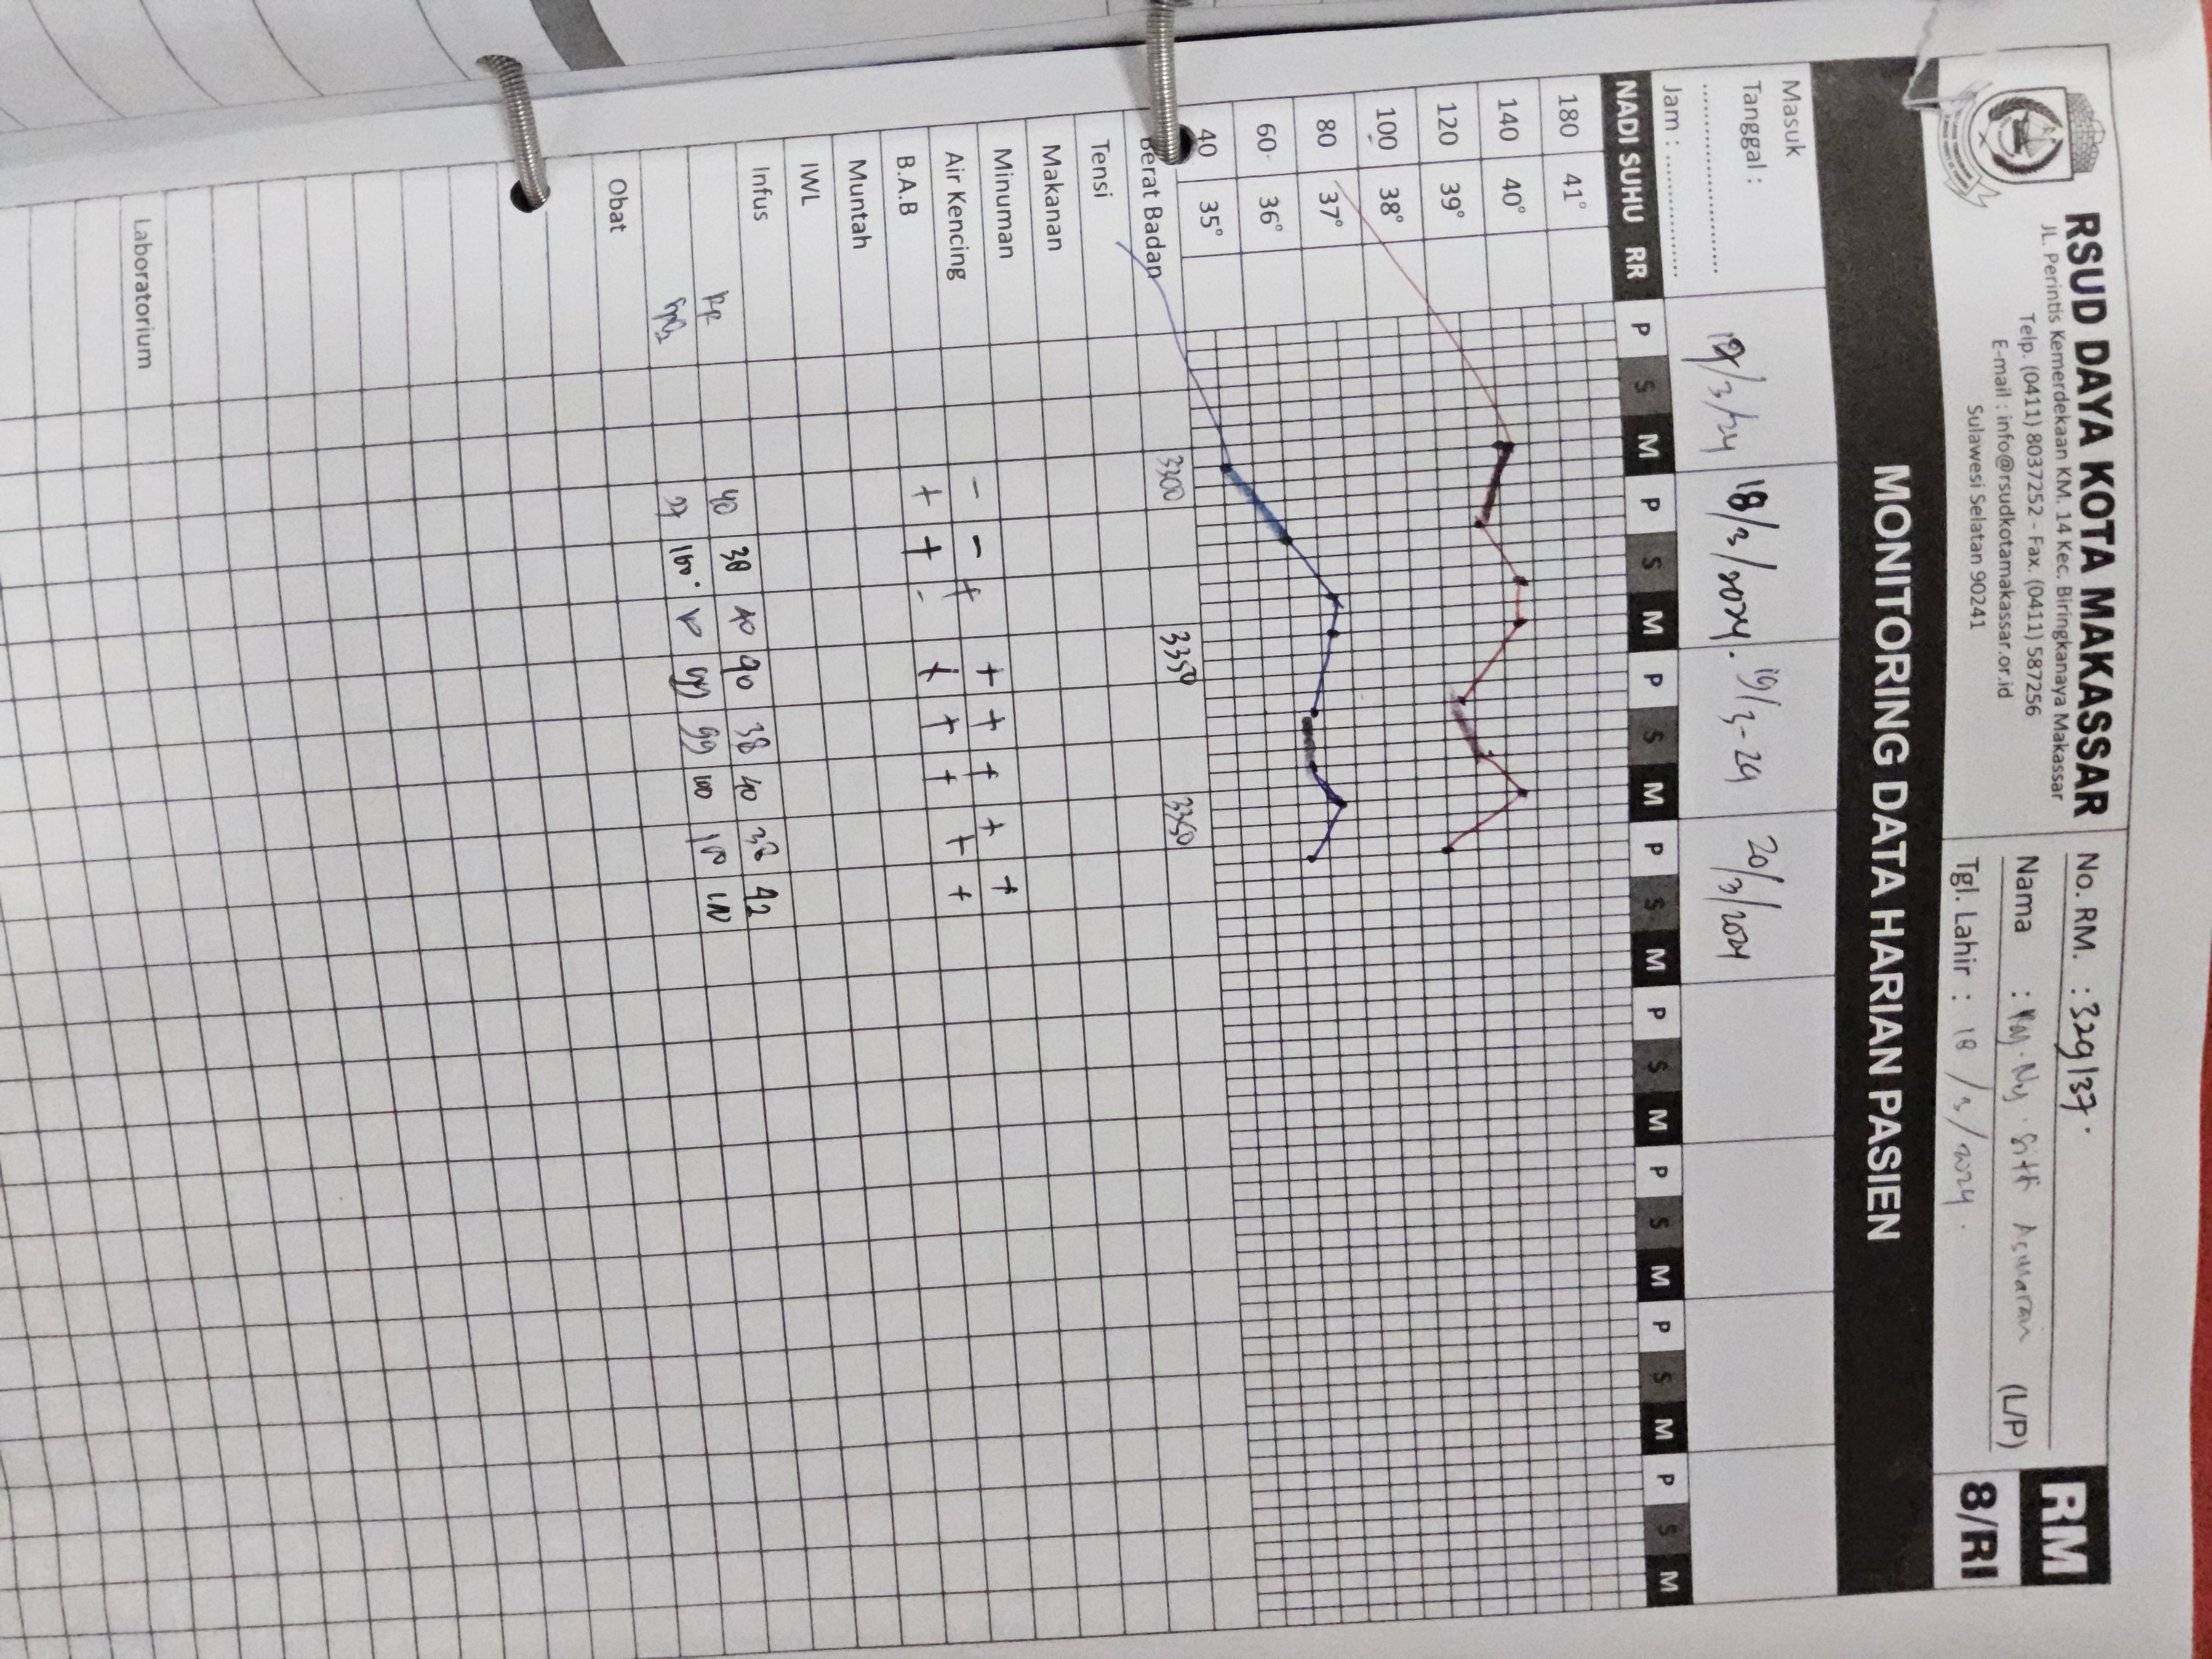 RSUD DAYA KOTA MAKASSAR
JL. Perintis Kemerdekaan KM. 14 Kec. Biringkanaya Makassar
Telp. (0411) 8037252 - Fax. (0411) 587256
E-mail : info@rsudkotamakassar.or.id
Sulawesi Selatan 90241
No. RM. : 329137.
Nama : Ny. Sitti (L/P)
Tgl. Lahir : 18/3/2024.
RM
8/RI
MONITORING DATA HARIAN PASIEN
Masuk
Tanggal :
Jam :
18/3/2024. 19/3-24 20/3/2024
NADI SUHU RR P S M P S M P S M P S M P S M P S M P S M P S M
180 41°
140 40°
120 39°
100 38°
80 37°
60 36°
40 35°
Berat Badan 3300 3350 3350
Tensi
Makanan
Minuman + + + + +
Air Kencing - - + + + + +
B.A.B + + - +
Muntah
IWL
Infus
RR 40 38 40 90 38 40 38 42
SpO2 100. 99 99 100 100
Obat
Laboratorium